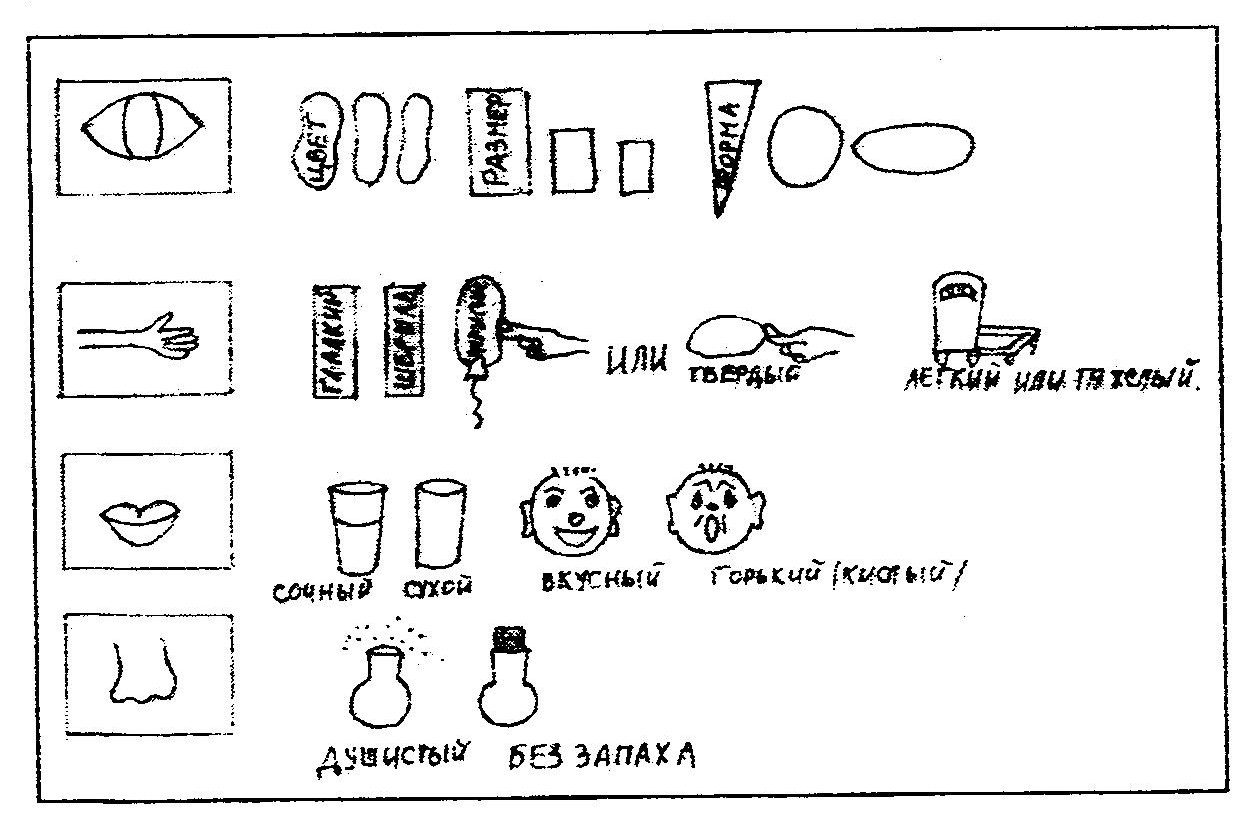 ЦВЕТ
РАЗМЕР
ФОРМА
ГЛАДКИЙ
ИЛИ
ТВЕРДЫЙ
ЛЕГКИЙ ИЛИ ТЯЖЕЛЫЙ.
СОЧНЫЙ
СУХОЙ
ВКУСНЫЙ
ГОРЬКИЙ /КИСЛЫЙ/
ДУШИСТЫЙ
БЕЗ ЗАПАХА